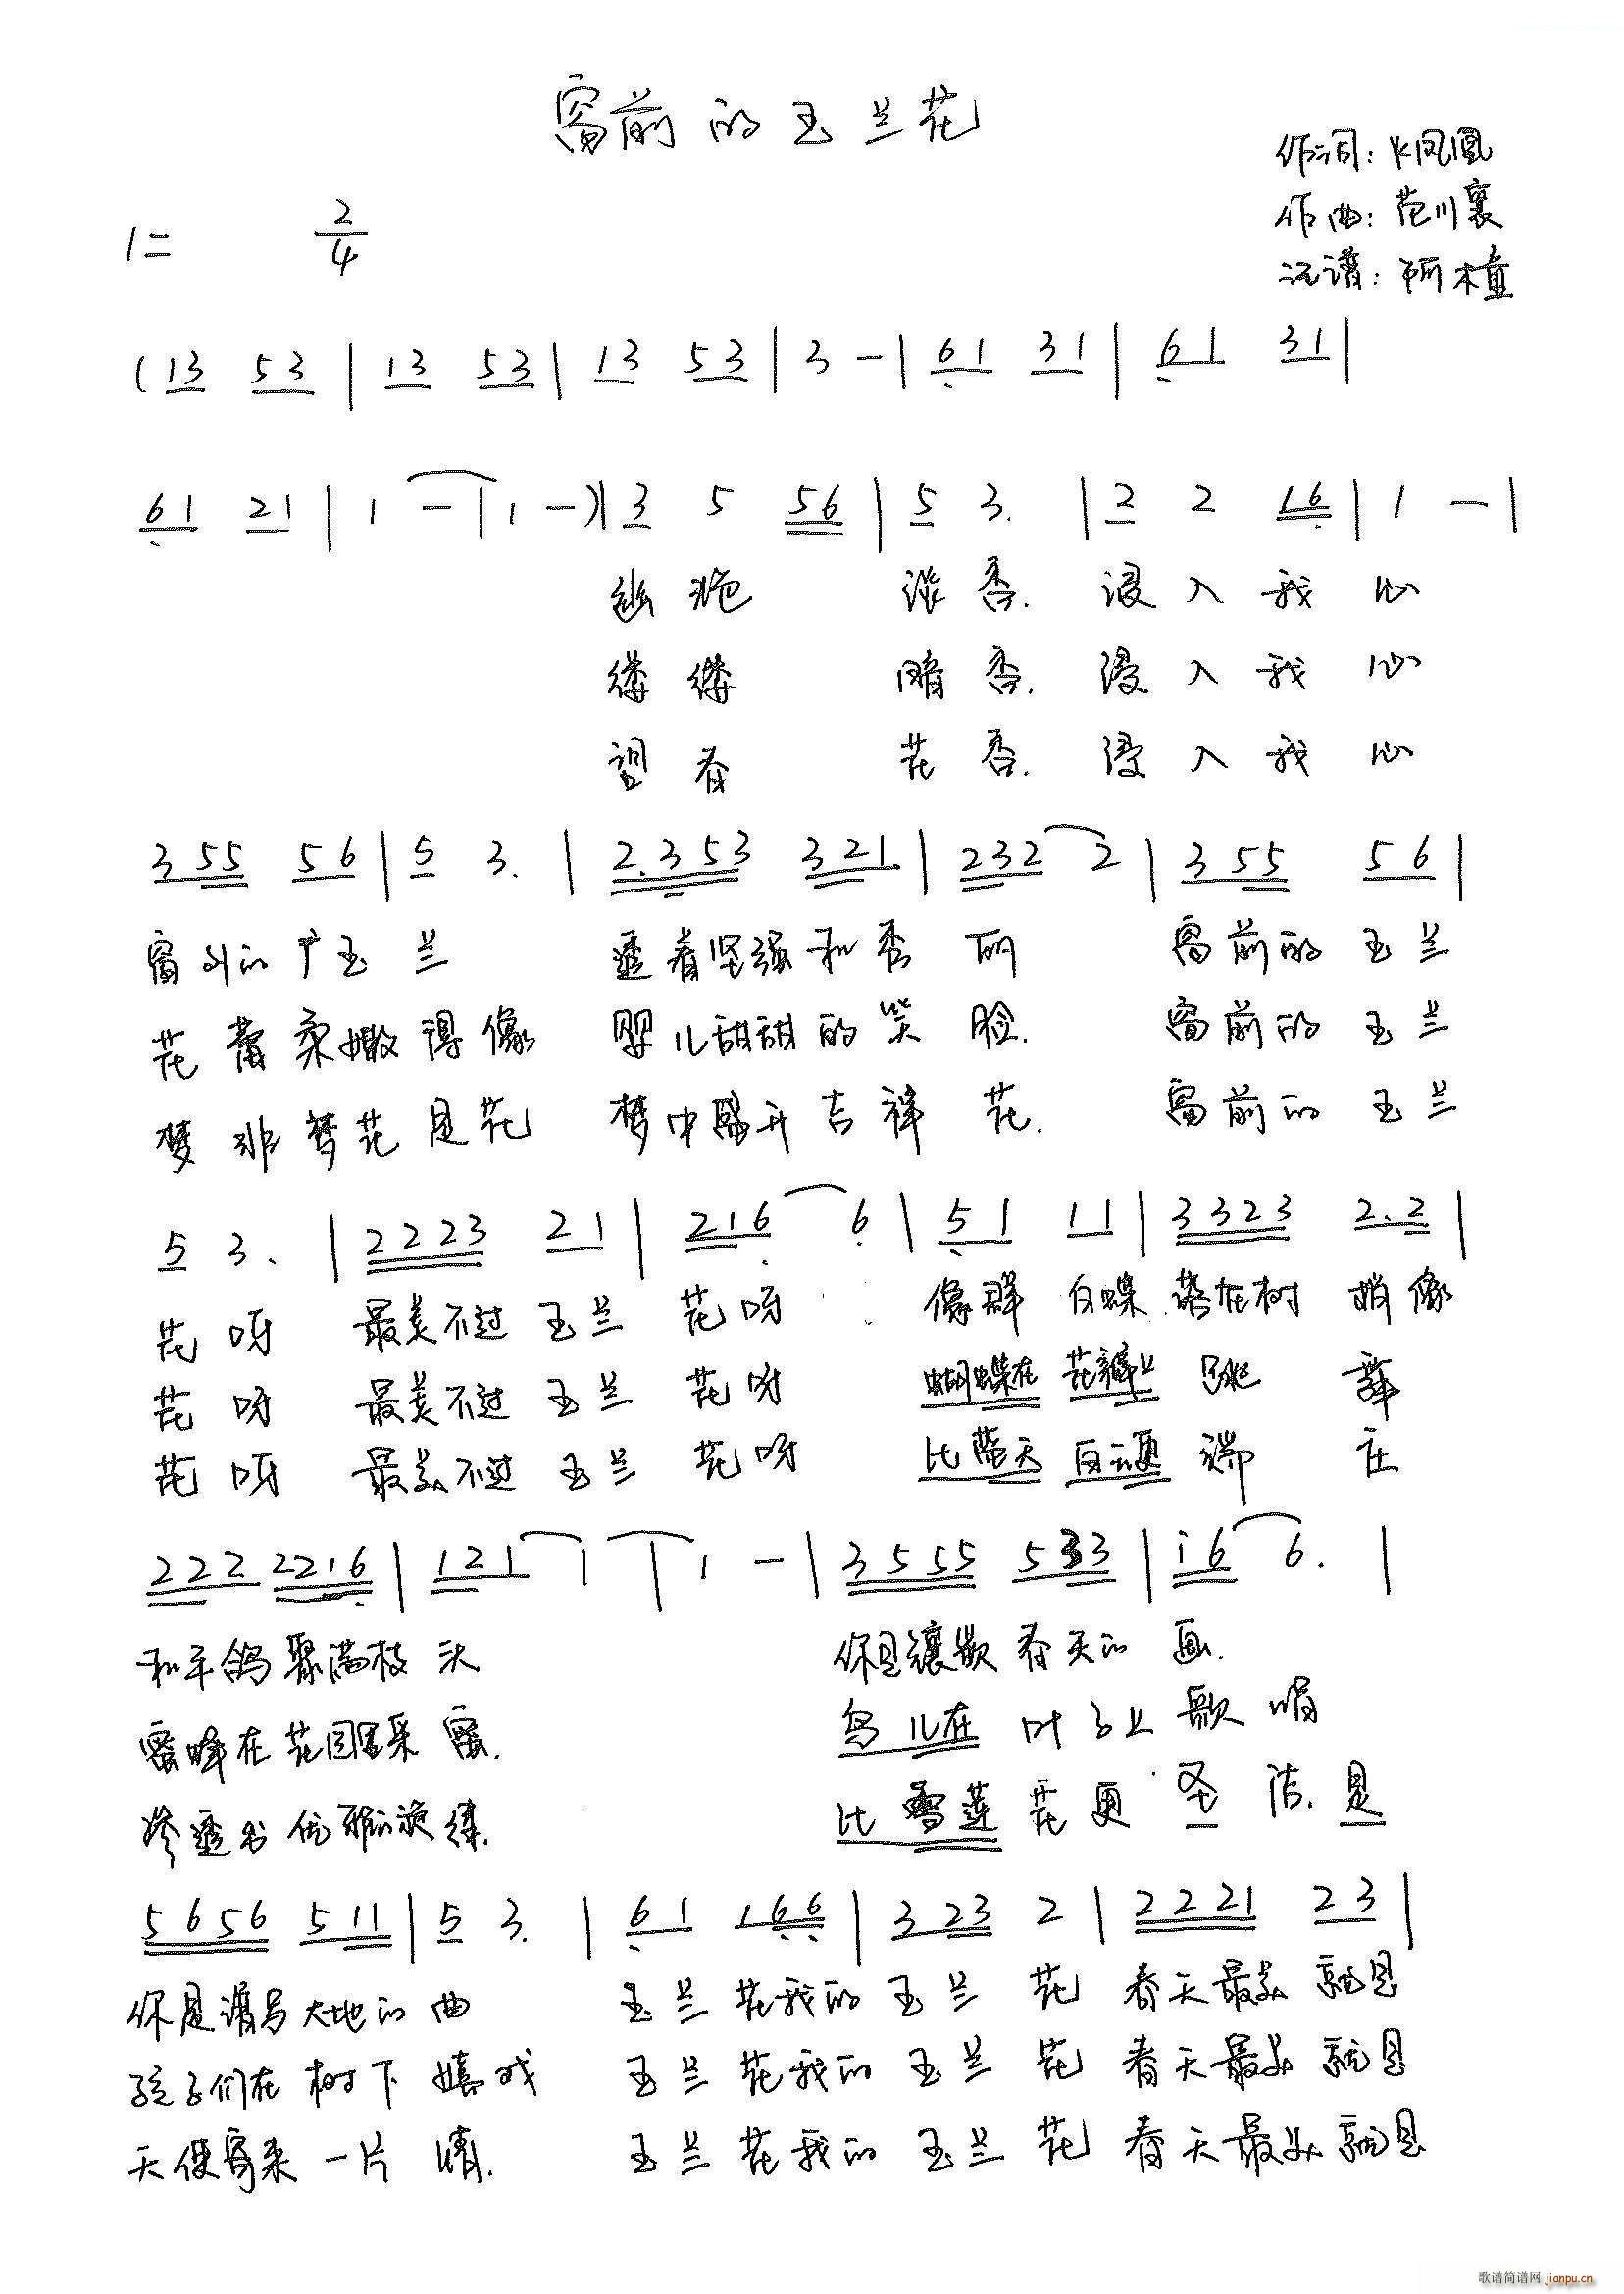 窗前的玉兰花
作词:火凤凰
作曲:范川襄
记谱:阿木童
1= 2/4
(13 53 | 13 53 | 13 53 | 3 - | 61 31 | 61 31 |
61 21 | 1 - | 1 -)| 3 5 56 | 5 3. | 2 2 16 | 1 - |
幽 淡香. 浸入我心
缕缕 暗香. 浸入我心
望春 花香. 浸入我心
355 56 | 5 3. | 2.353 321. | 232 2 | 355 56 |
窗外的 玉兰 透着坚强和秀丽 窗前的玉兰
花蕾柔嫩得像 婴儿甜甜的笑脸. 窗前的玉兰
梦非梦花是花 梦中盛开吉祥花. 窗前的玉兰
5 3. | 2223 21 | 216 6 | 51 11 | 3323 2.2 |
花呀 最美不过玉兰花呀 像群白蝶落在树梢像
花呀 最美不过玉兰花呀 蝴蝶在花瓣上跳舞
花呀 最美不过玉兰花呀 比蓝天白云更端庄
222 2216 | 121 1 | 1 - | 3555 533 | i6 6. |
和平鸽聚满枝头 你是镶嵌春天的画.
蜜蜂在花园里采蜜. 鸟儿在叶子上歌唱
渗透出优雅的旋律. 比雪莲花更圣洁.是
5656 511 | 5 3. | 61 166 | 323 2 | 2221 23 |
你是谱写大地的曲 玉兰花我的玉兰花 春天最美就是
孩子们在树下嬉戏 玉兰花我的玉兰花 春天最美就是
天使寄来一片情. 玉兰花我的玉兰花 春天最美就是
歌谱简谱网 jianpu.cn